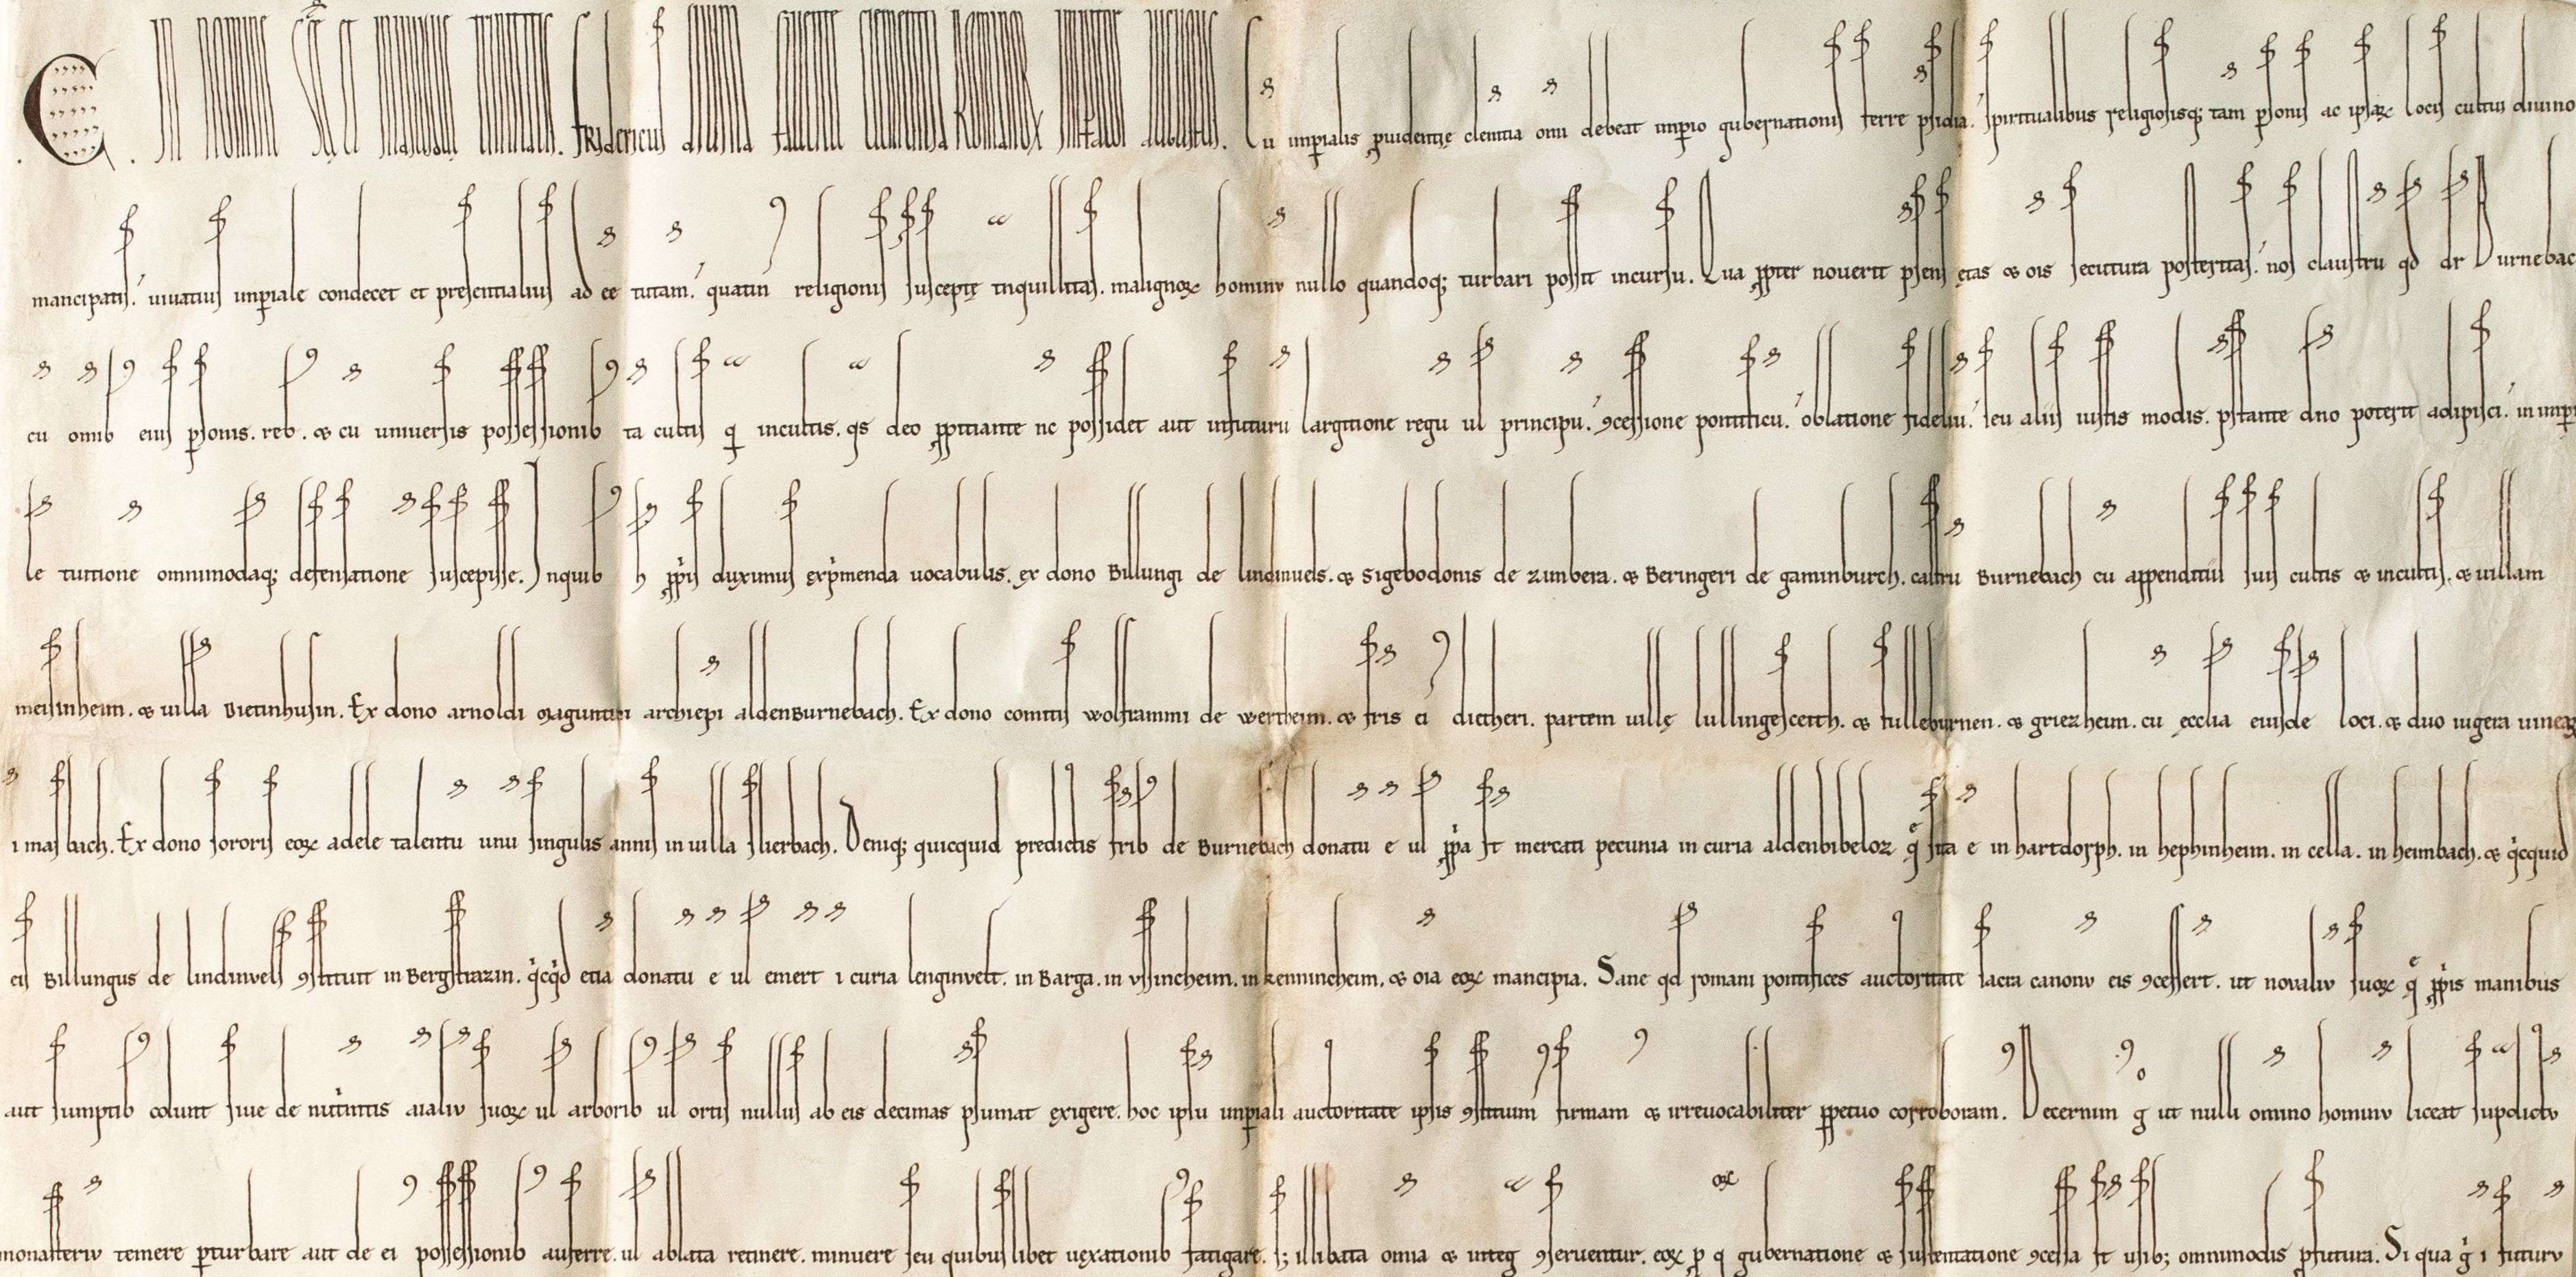 C. In nomine sce et individue trinitatis. Fridericus divina favente clementia Romanoꝝ imperator augustus. Cu imperialis providentię clemtia omi debeat imperio gubernationis ferre psidia. spiritualibus religiosisq; tam psonis ac ipsaꝝ locis cultui divino
mancipatis. vivatius imperiale condecet et presentialius ad ee tutam. quatin religionis susceptę tnquillitas. malignoꝝ hominu nullo quandoq; turbari possit incursu. Qua ppter noverit psens ętas & ois secutura posteritas. nos claustru qd dr Burnebac
cu omib eius psonis. reb. & cu universis possessionib ta cultis q incultis. qs deo ppitiante nc possidet aut infuturu largitione regu ul principu. ꝯcessione pontificu. oblatione fideliu. seu aliis iustis modis. pstante dno poterit adipisci. in imperi
le tuitione omnimodaq; defensatione suscepisse. Inquib h ppis duximus exprimenda vocabulis. ex dono Billungi de lindinuels. & Sigebodonis de zimbera. & Beringeri de gaminburch. castru Burnebach cu appenditiis suis cultis & incultis. & villam
meisinheim. & villa Dietinhusin. Ex dono arnoldi maguntini archiepi aldenburnebach. Ex dono comitis wolframmi de wertheim. & fris ei dietheri. partem villę lullingesceith. & fulleburnen. & griezheim. cu ęcclia eiusde loci. & duo iugera vineaꝝ
i masbach. Ex dono sororis eoꝝ adele talentu unu singulis annis in villa slierbach. Deniq; quicquid predictis frib de Burnebach donatu e ul ppa st mercati pecunia in curia aldenbibeloz q sita e in hartdorph. in hephinheim. in cella. in heimbach. & qcquid
eis Billungus de lindinvels ꝯstituit in Bergstrazin. qcqd etia donatu e ul emert i curia lenginvelt. in Barga. in vssincheim. in kennincheim. & oia eoꝝ mancipia. Sane qd romani pontifices auctoritate sacra canonu eis ꝯcessert. ut novaliu suoꝝ q ppis manibus
aut sumptib colunt sive de nutrintis aialiu suoꝝ ul arborib ul ortis nullus ab eis decimas psumat exigere. hoc ipsu imperiali auctoritate ipsis ꝯstituim firmam & irrevocabiliter ppetuo corroboram. Decernim g ut nulli omino hominu liceat supdictu
monasteriu temere pturbare aut de ei possessionib auferre. ul ablata retinere. minuere seu quibuslibet vexationib fatigare. s; illibata omia & integ ꝯserventur. eoꝝ p q gubernatione & sustentatione ꝯcessa st usib; omnimodis pfutura. Si qua g i futuru